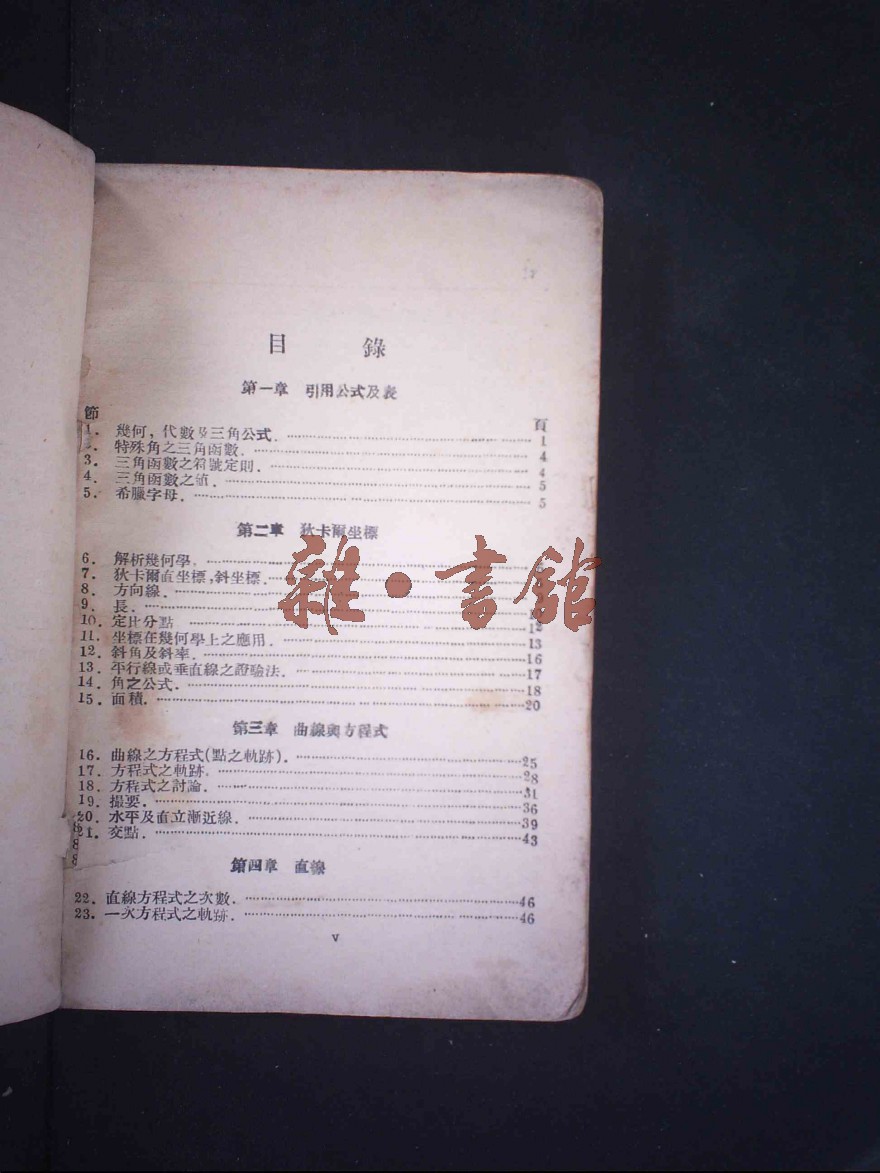 目 錄
第一章 引用公式及表
節
頁
1. 幾何,代數及三角公式. 1
特殊角之三角函數. 4
3. 三角函數之符號定則. 4
4. 三角函數之值. 5
5. 希臘字母. 5
第二章 狄卡爾坐標
6. 解析幾何學.
7. 狄卡爾直坐標,斜坐標.
8. 方向線.
9. 長.
10. 定比分點 12
11. 坐標在幾何學上之應用. 13
12. 斜角及斜率. 16
13. 平行線或垂直線之證驗法. 17
14. 角之公式. 18
15. 面積. 20
雜·書館
第三章 曲線與方程式
16. 曲線之方程式(點之軌跡). 25
17. 方程式之軌跡. 28
18. 方程式之討論. 31
19. 撮要. 36
20. 水平及直立漸近線. 39
21. 交點. 43
第四章 直線
22. 直線方程式之次數. 46
23. 一次方程式之軌跡. 46
v